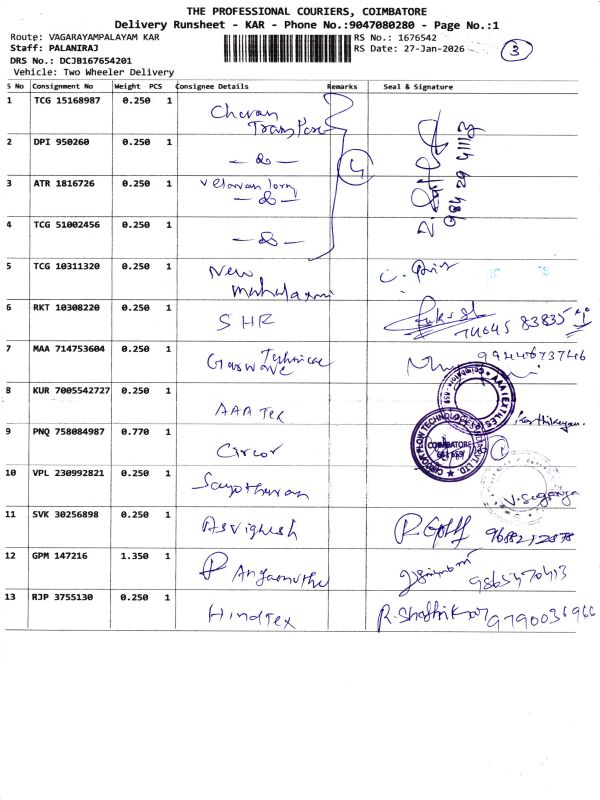 THE PROFESSIONAL COURIERS, COIMBATORE
Delivery Runsheet - KAR - Phone No.:9047080280 - Page No.:1
Route: VAGARAYAMPALAYAM KAR
RS No.: 1676542
Staff: PALANIRAJ
RS Date: 27-Jan-2026
3
DRS No.: DCJB167654201
Vehicle: Two Wheeler Delivery
S No Consignment No Weight PCS Consignee Details Remarks Seal & Signature
1 TCG 15168987 0.250 1 Cheran
Transport
2 DPI 950260 0.250 1 — do —
4
98429 41113
3 ATR 1816726 0.250 1
— do —
4 TCG 51002456 0.250 1 — do —
5 TCG 10311320 0.250 1 New
Mahalaxmi
6 RKT 10308220 0.250 1 SHR
74645 83835
7 MAA 714753604 0.250 1 Technical
9944673746
8 KUR 7005542727 0.250 1 AAA Tex
AAA TEXTILES
Coimbatore
Karthikeyan.
9 PNQ 758084987 0.770 1 Circor
CIRCOR FLOW TECHNOLOGIES PVT LTD
COIMBATORE
1
10 VPL 230992821 0.250 1
11 SVK 30256898 0.250 1 Asvighesh
12 GPM 147216 1.350 1
9865470413
13 RJP 3755130 0.250 1 Hindtex
9790036966